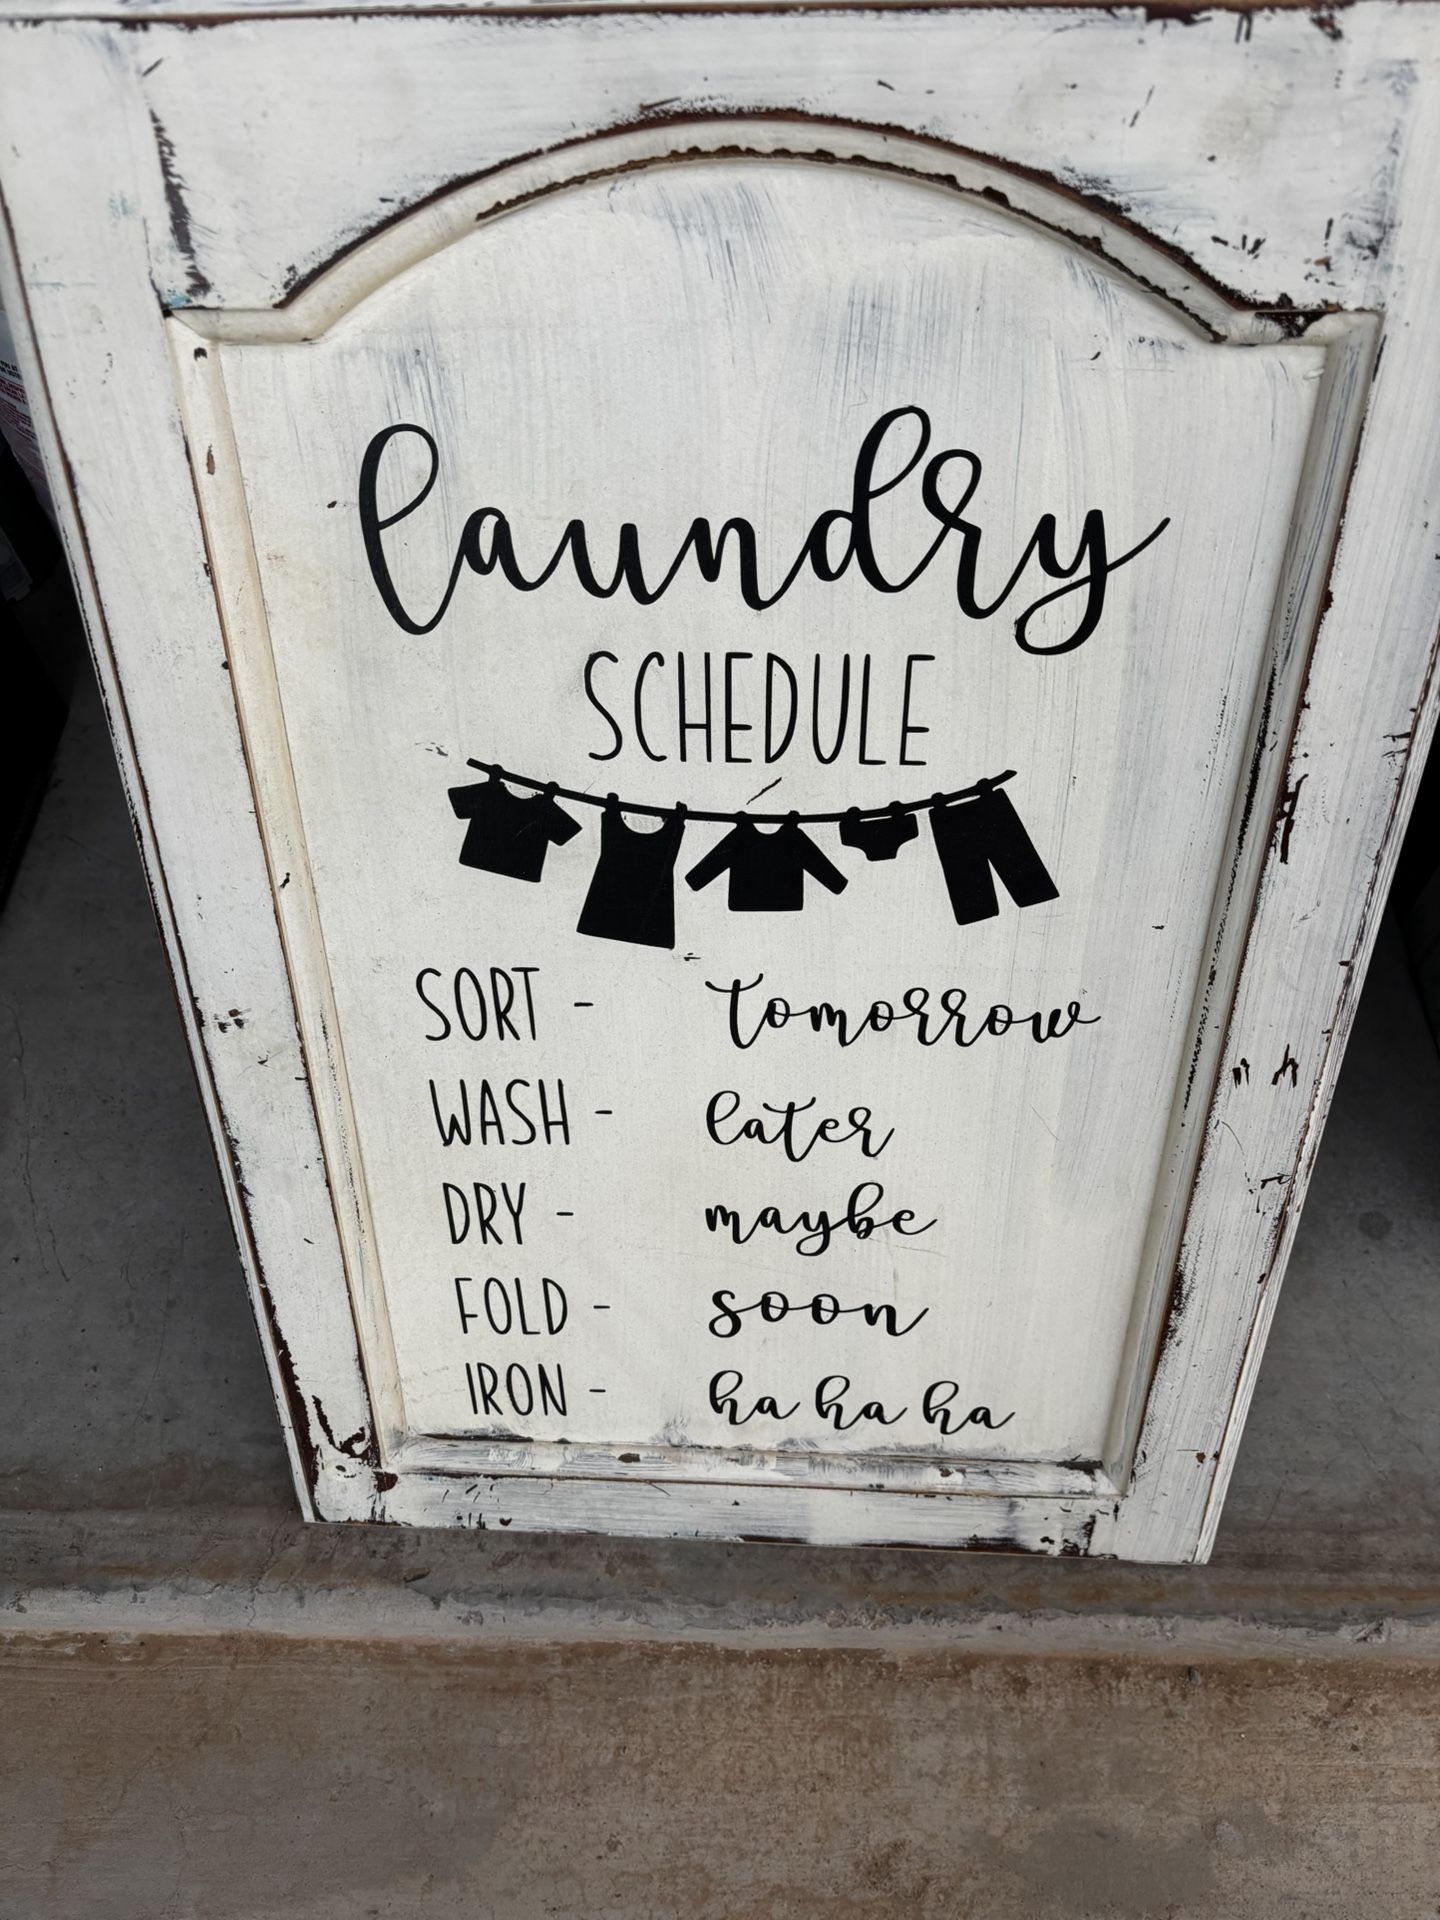 laundry
SCHEDULE
SORT - tomorrow
WASH - later
DRY - maybe
FOLD - soon
IRON - ha ha ha